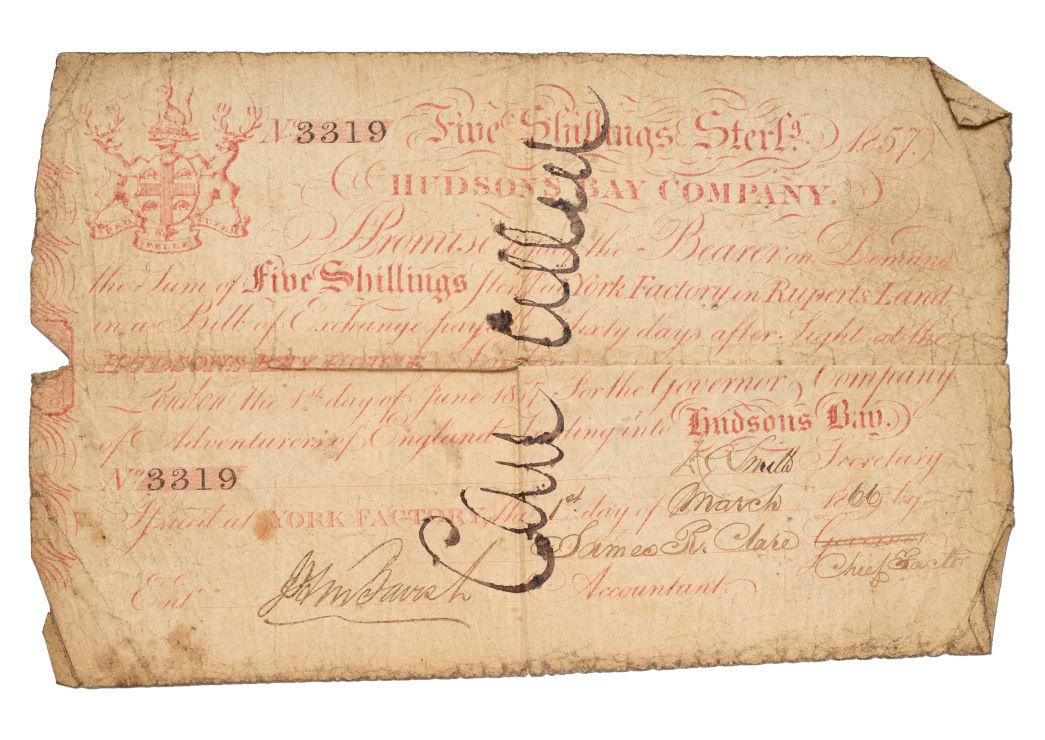 No 3319 Five Shillings Sterlg. 1857
HUDSONS BAY COMPANY.
PRO PELLE CUTEM
I Promise to pay the Bearer on Demand
the Sum of Five Shillings Sterlg at York Factory in Ruperts Land
in a Bill of Exchange payable sixty days after Sight at the
HUDSONS BAY HOUSE
London the 1st day of June 1857 For the Governor & Company
of Adventurers of England trading into Hudsons Bay.
No 3319
Smith Secretary
Issued at YORK FACTORY, the 1st day of March 1866 by
James R. Clare Governor
Chief Factor
Entd. Accountant.
Cancelled